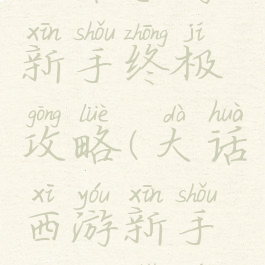 xīn shǒu zhōng jí
新手终极
gōng lüè dà huà
攻略(大话
xī yóu xīn shǒu
西游新手